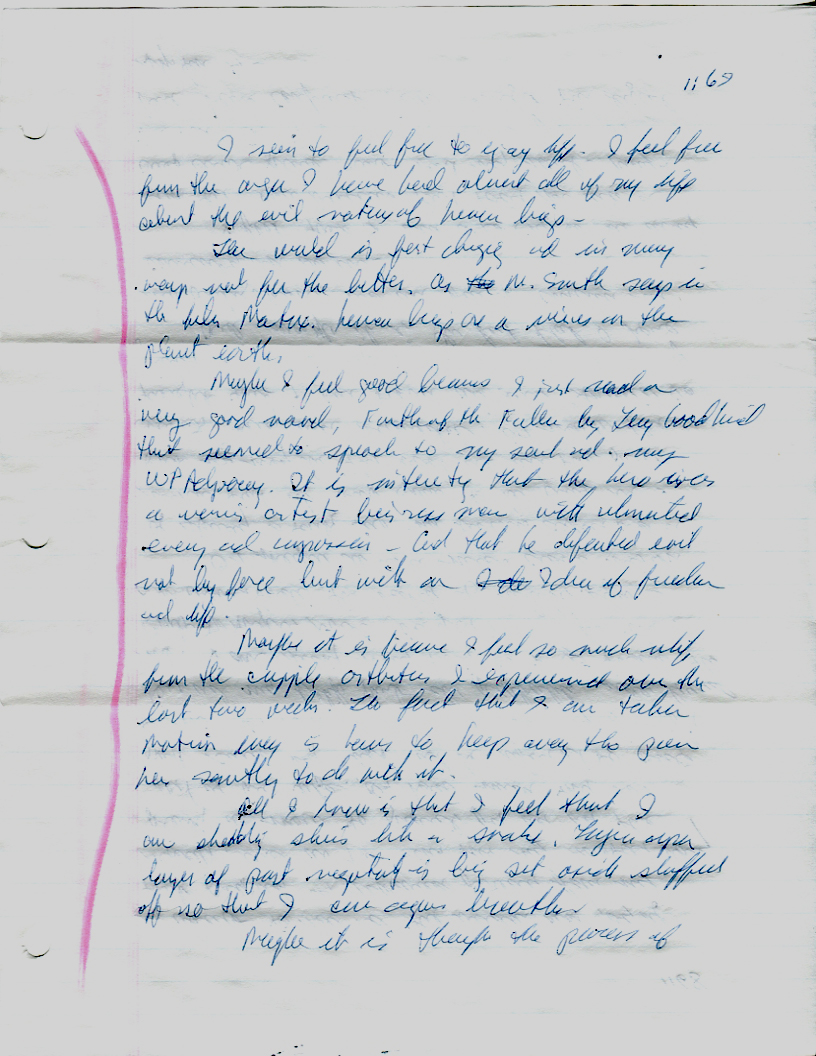 1:69
I seem to feel free to enjoy life. I feel free
from the anger I have had almost all of my life
about the evil nature of human beings -
The world is fast changing and in many
ways not for the better. As the Mr. Smith says in
the film Matrix. human beings are a virus on the
planet earth.
Maybe I feel good because I just read a
very good novel, Faith of the Fallen by Terry Goodkind
that seemed to speak to my soul and my
WP Advocacy. It is interesting that the hero was
a artist business man with unlimited
energy and compassion - And that he defeated evil
not by force but with an Idea of freedom
and life.
Maybe it is because I feel so much relief
from the crippling arthritis I experienced over the
last two weeks. The fact that I am taking
Motrin every hours to keep away the pain
has something to do with it.
All I know is that I feel that I
am shedding skins like a snake. Layer upon
layer of past negativity is being set aside sluffed
off so that I can again breathe
Maybe it is through the process of